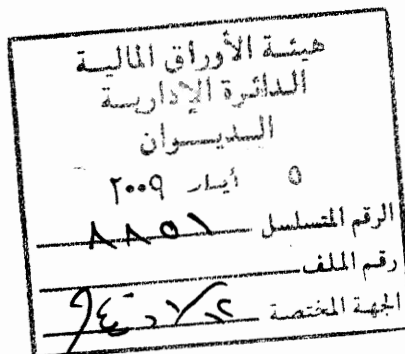 هيئة الأوراق المالية
الدائرة الإدارية
الديوان
٥ أيار ٢٠٠٩
الرقم المتسلسل ٨٨٥١
رقم الملف
الجهة المختصة